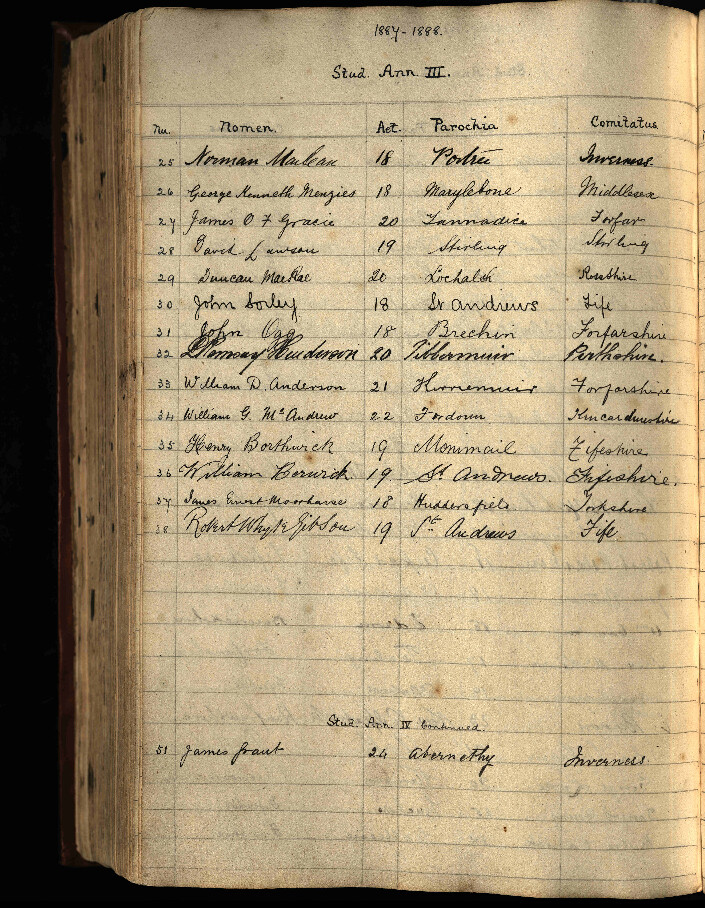 1887-1888.
Stud. Ann. III.
Nu. Nomen. Aet. Parochia Comitatus
25 Norman Maclean 18 Portree Inverness
26 George Kenneth Menzies 18 Marylebone Middlesex
27 James O F Gracie 20 Tannadice Forfar
28 David Lawson 19 Stirling Stirling
29 Duncan MacRae 20 Lochalsh Rossshire
30 John Sorley 18 St Andrews Fife
31 John Ogg 18 Brechin Forfarshire
32 Ramsay Henderson 20 Tibbermuir Perthshire.
33 William D. Anderson 21 Kirriemuir Forfarshire
34 William G. McAndrew 22 Fordoun Kincardineshire
35 Henry Borthwick 19 Monimail Fifeshire
36 William Berwick 19 St Andrews. Fifeshire.
37 James Ernest Moorhouse 18 Huddersfield Yorkshire
38 Robert Whyte Gibson 19 St. Andrews Fife
Stud. Ann. IV Continued.
51 James Grant 24 Abernethy Inverness